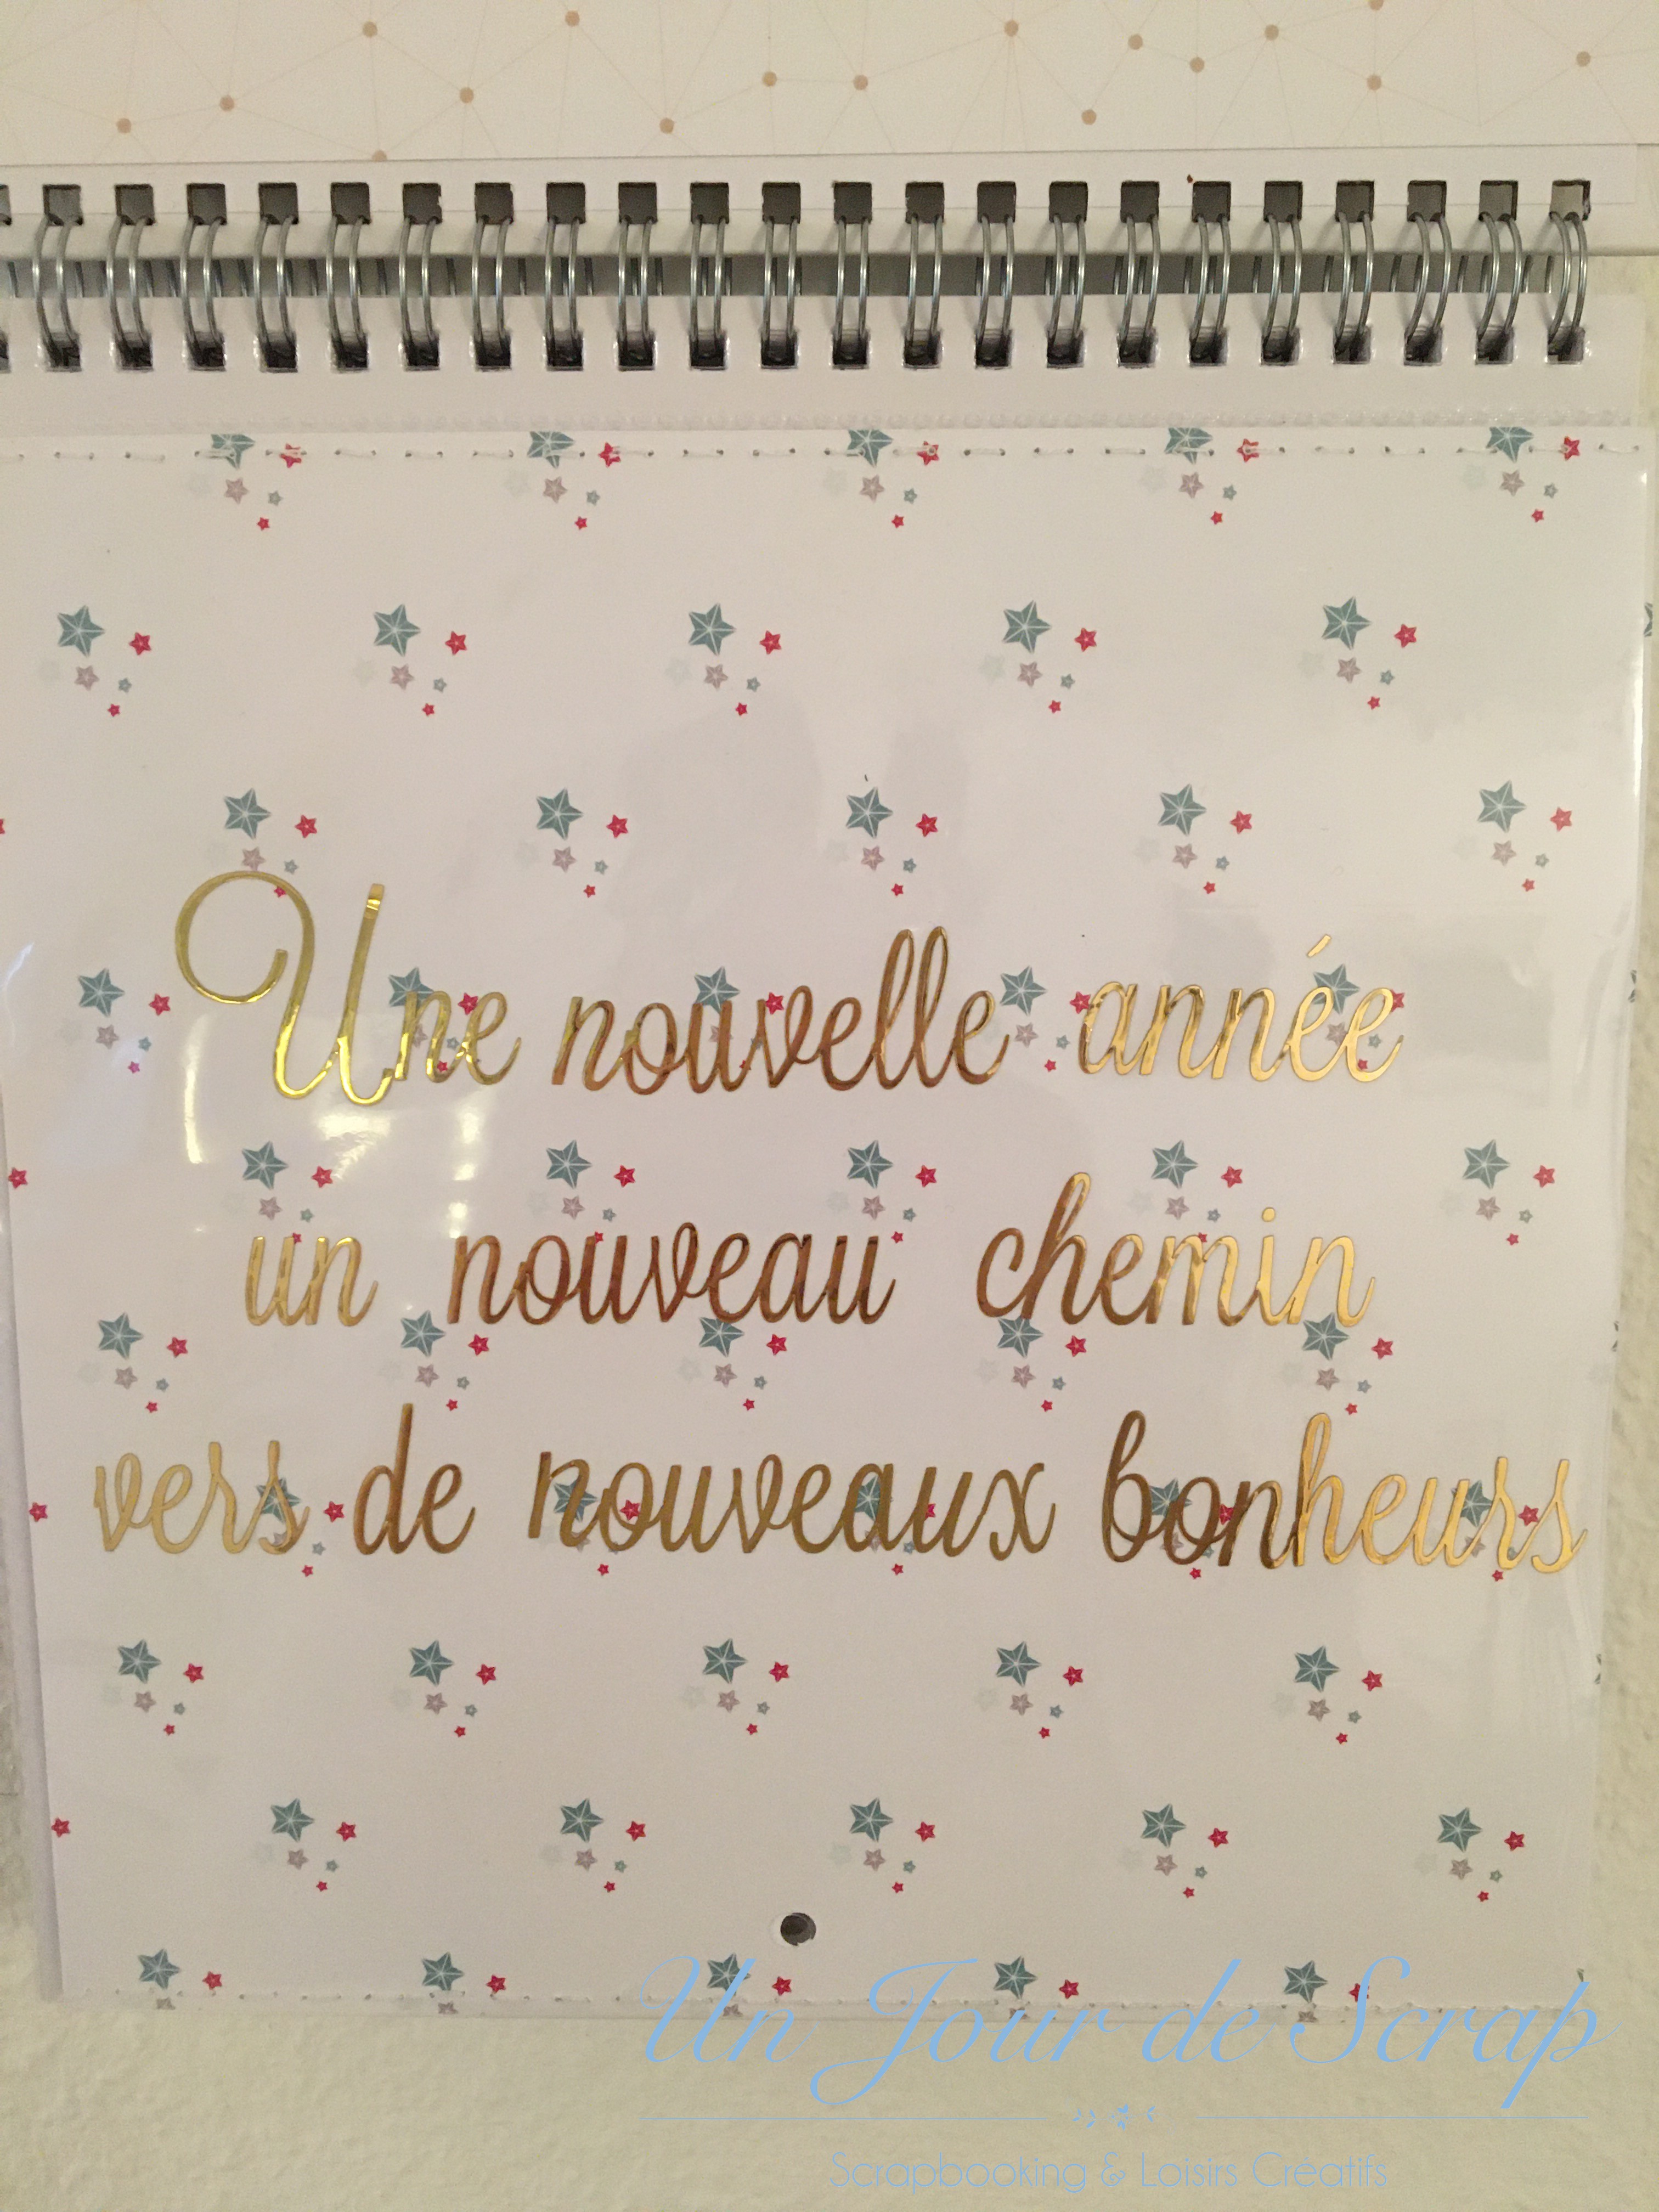 Une nouvelle année
un nouveau chemin
vers de nouveaux bonheurs
Un Jour de Scrap
Scrapbooking & Loisirs Créatifs